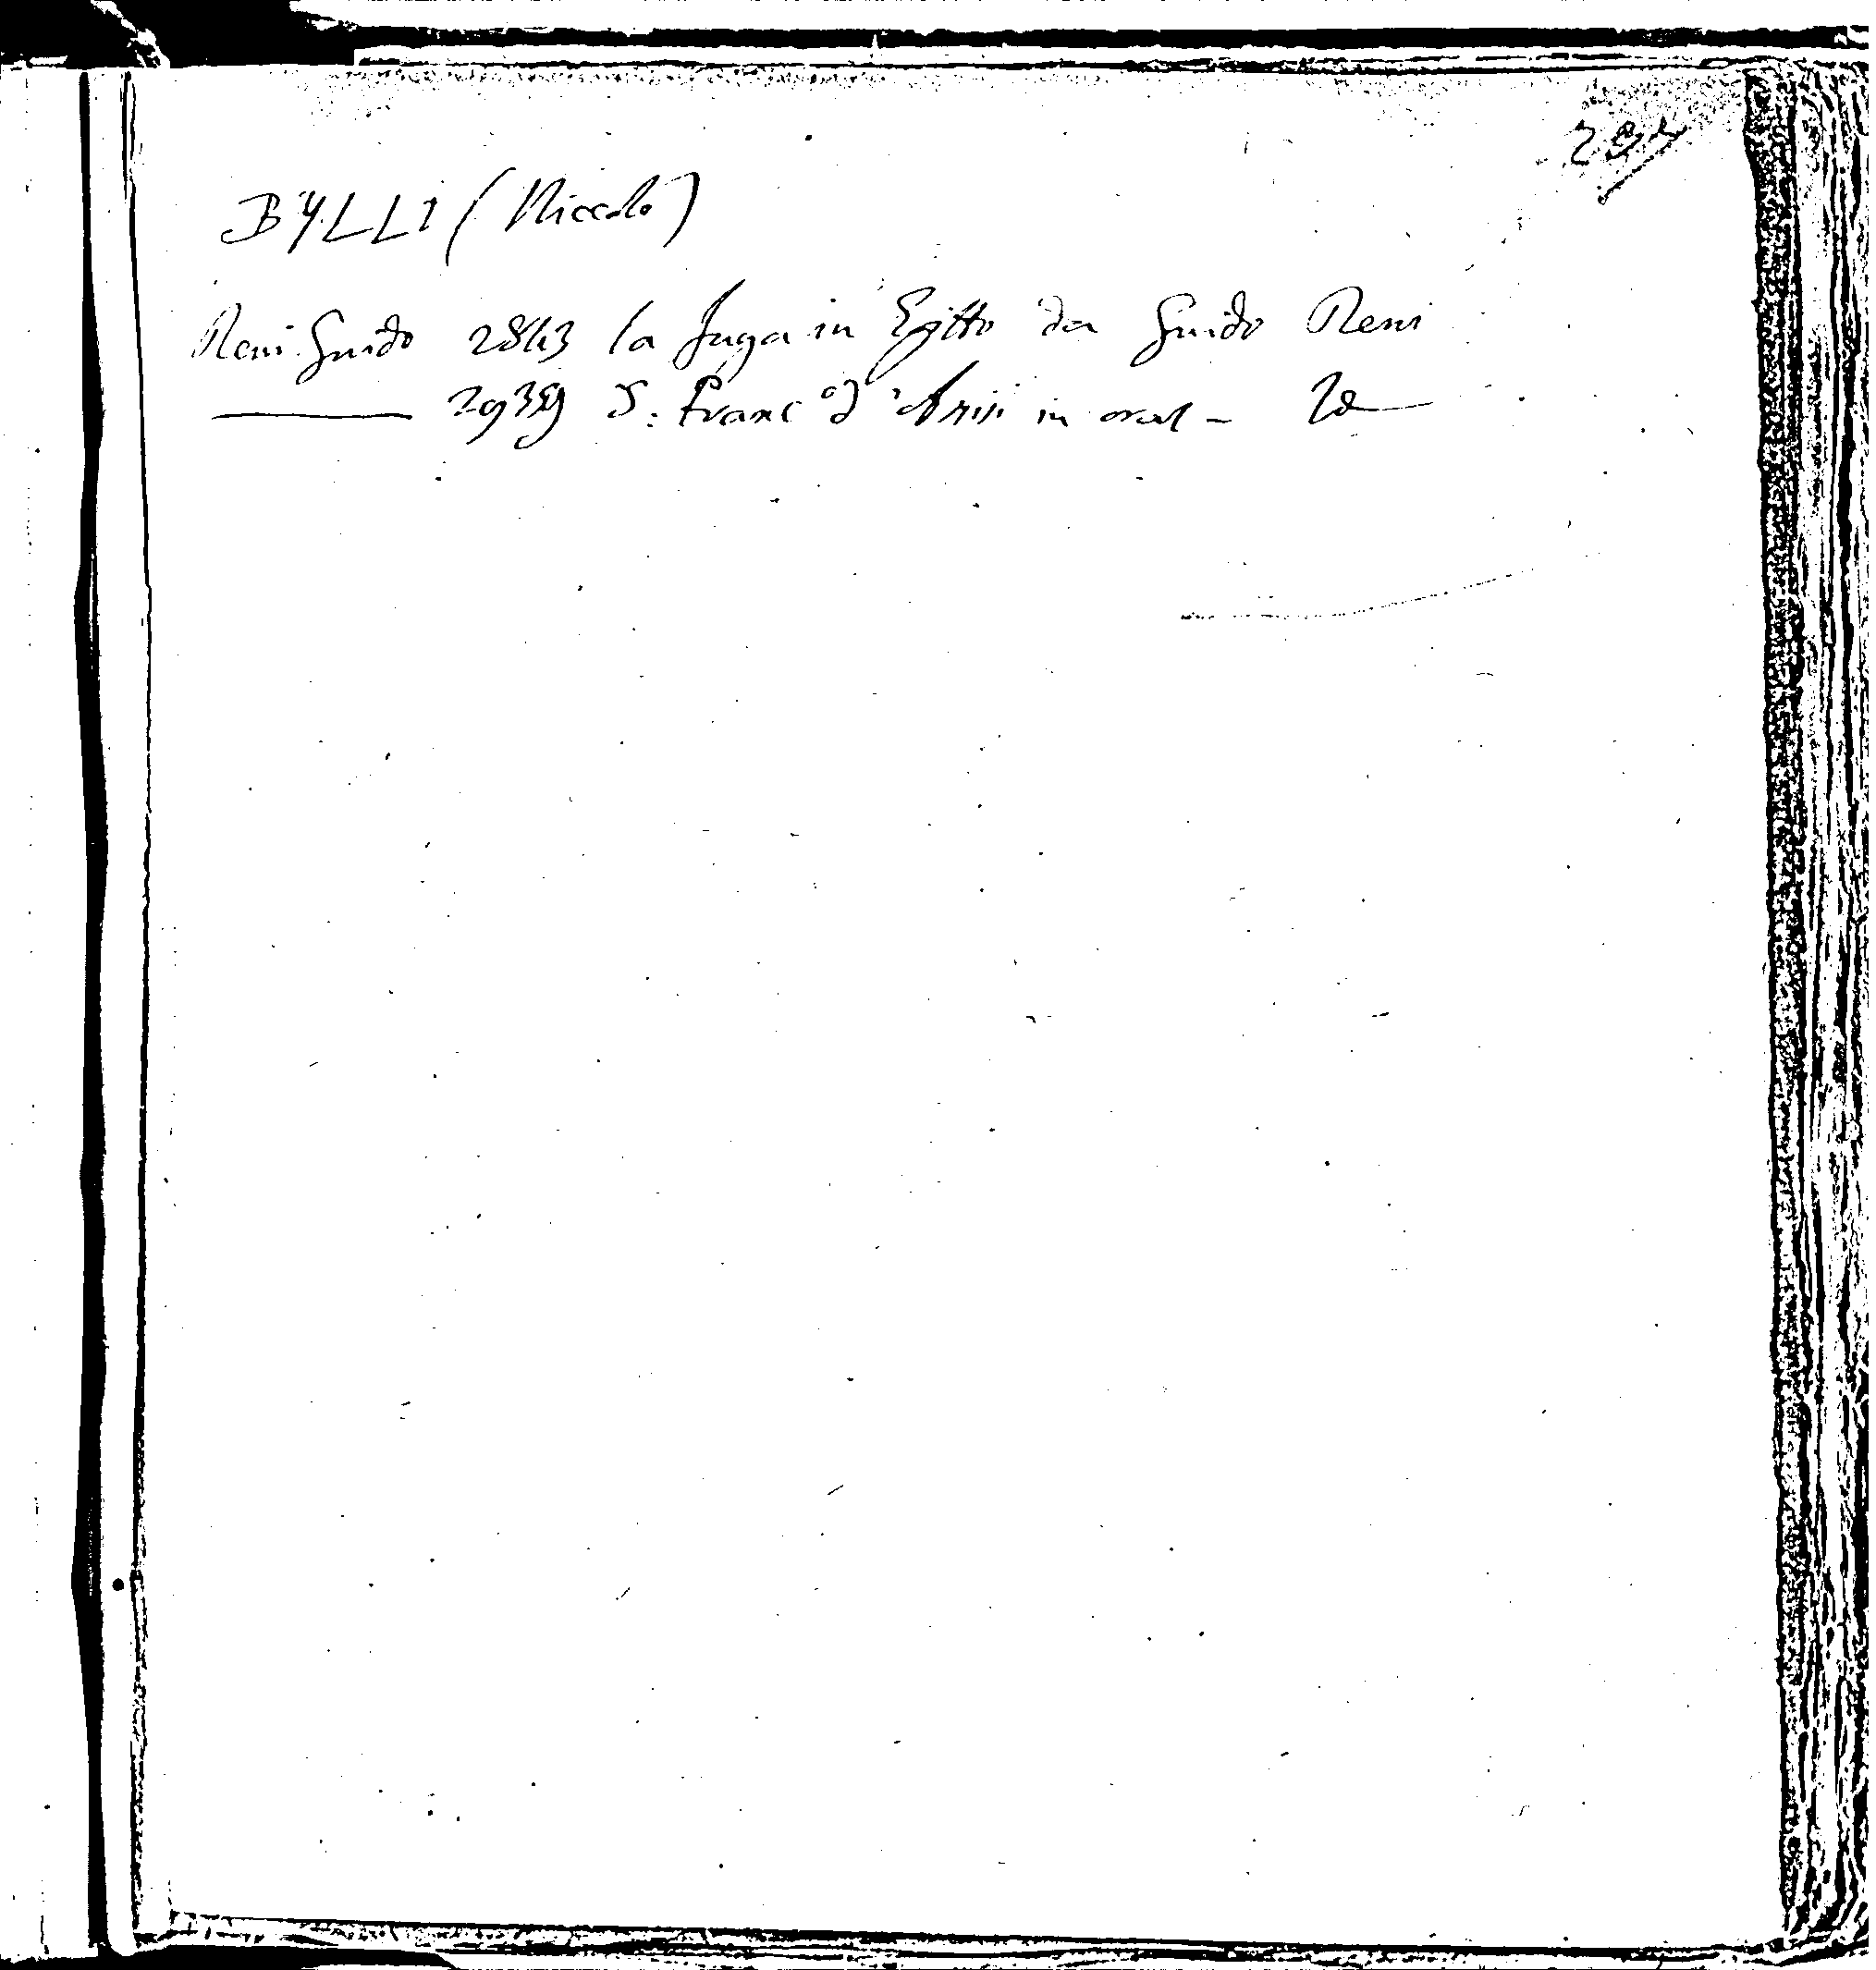 BYLLI (Niccolo)
Reni Guido 2843 la fuga in Egitto da Guido Reni
2939 S: Franc º d'Assisi in orat - Id